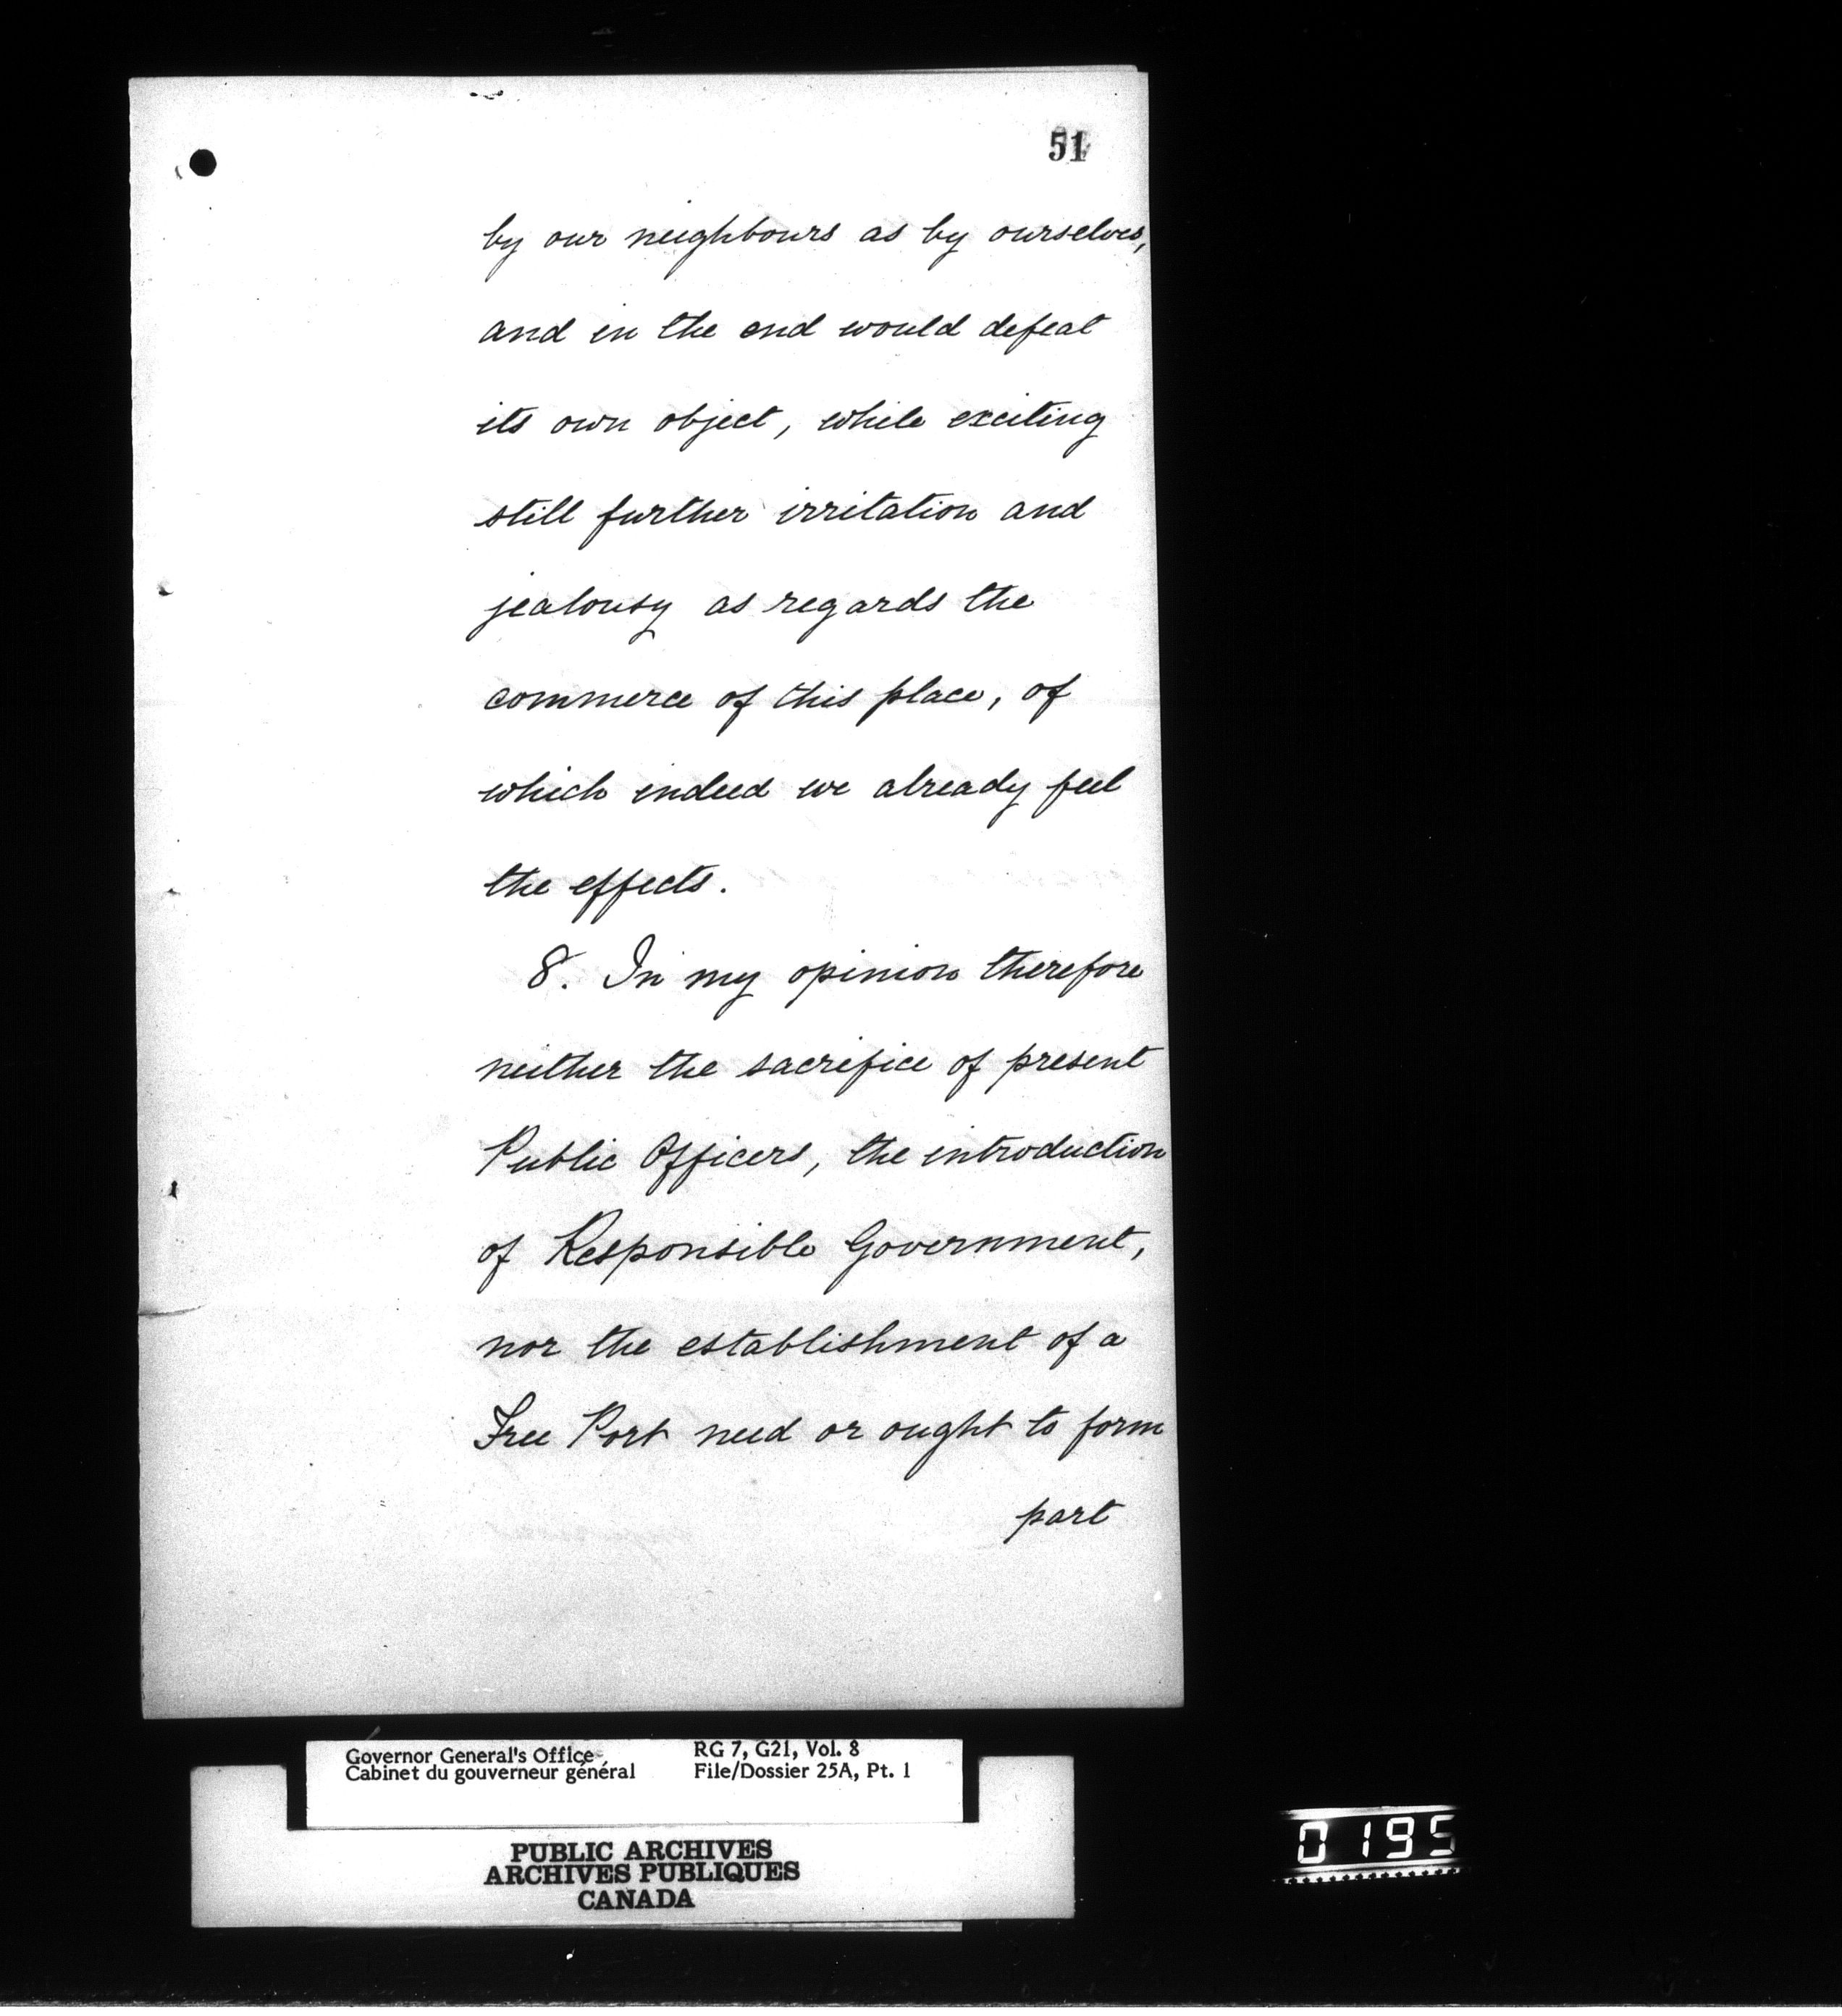 51
by our neighbours as by ourselves,
and in the end would defeat
its own object, while exciting
still further irritation and
jealousy as regards the
commerce of this place, of
which indeed we already feel
the effects.
8. In my opinion therefore
neither the sacrifice of present
Public Officers, the introduction
of Responsible Government,
nor the establishment of a
Free Port need or ought to form
part
Governor General's Office
Cabinet du gouverneur général
RG 7, G21, Vol. 8
File/Dossier 25A, Pt. 1
PUBLIC ARCHIVES
ARCHIVES PUBLIQUES
CANADA
0195